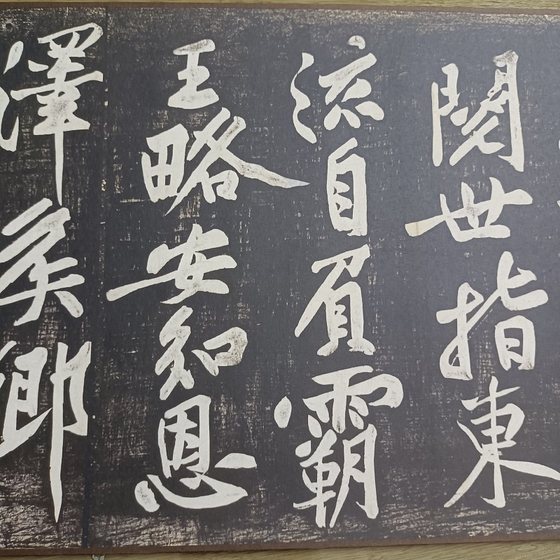 閱世指東
流自負霸
王略安知恩
澤侯卿